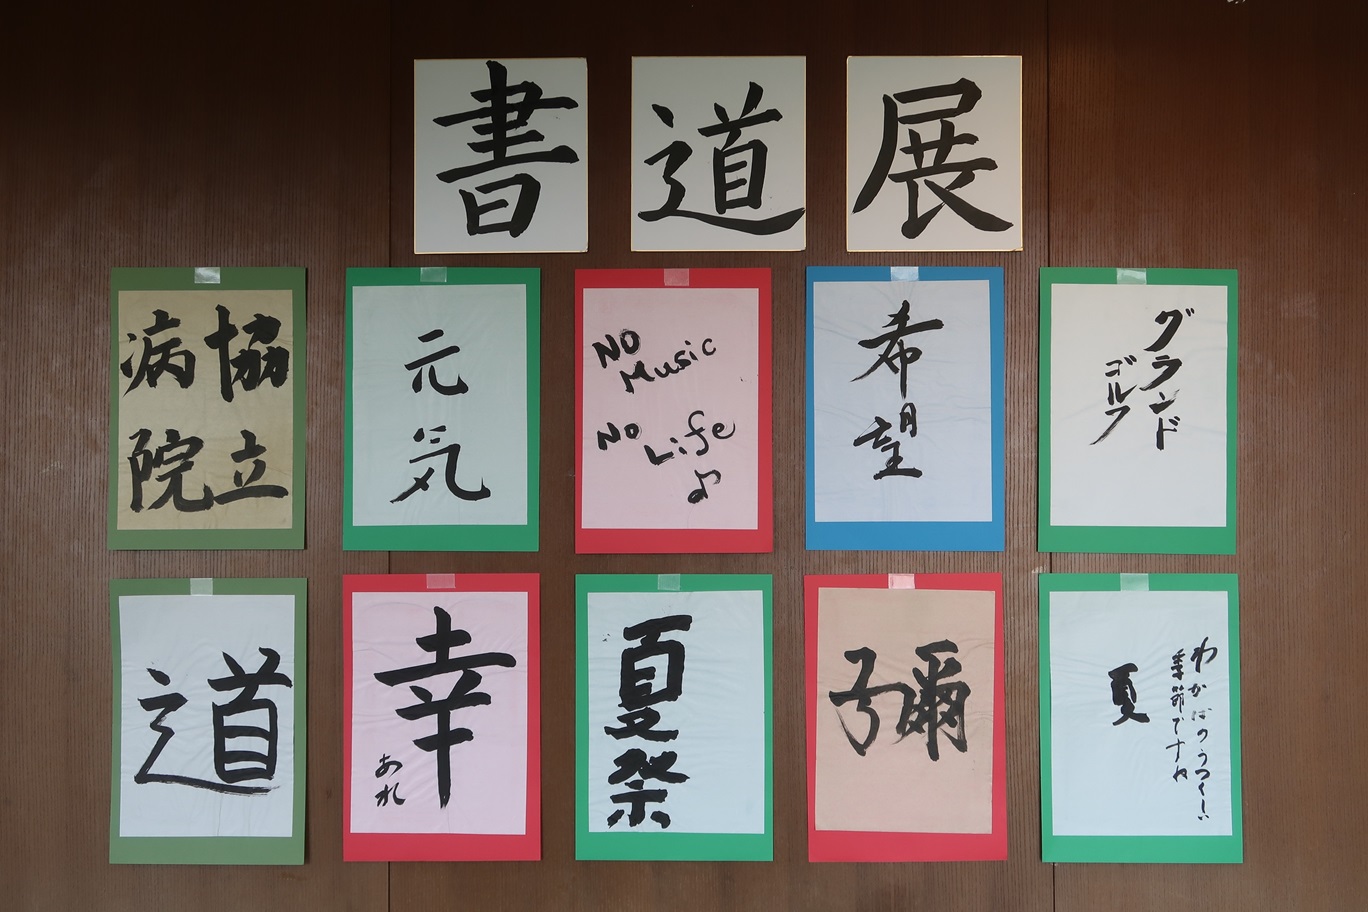 書道展
協立
病院
元気
NO
Music
No
Life♪
希望
グランド
ゴルフ
道
幸
あれ
夏祭
彌
わかばのうつくしい
季節ですね
夏